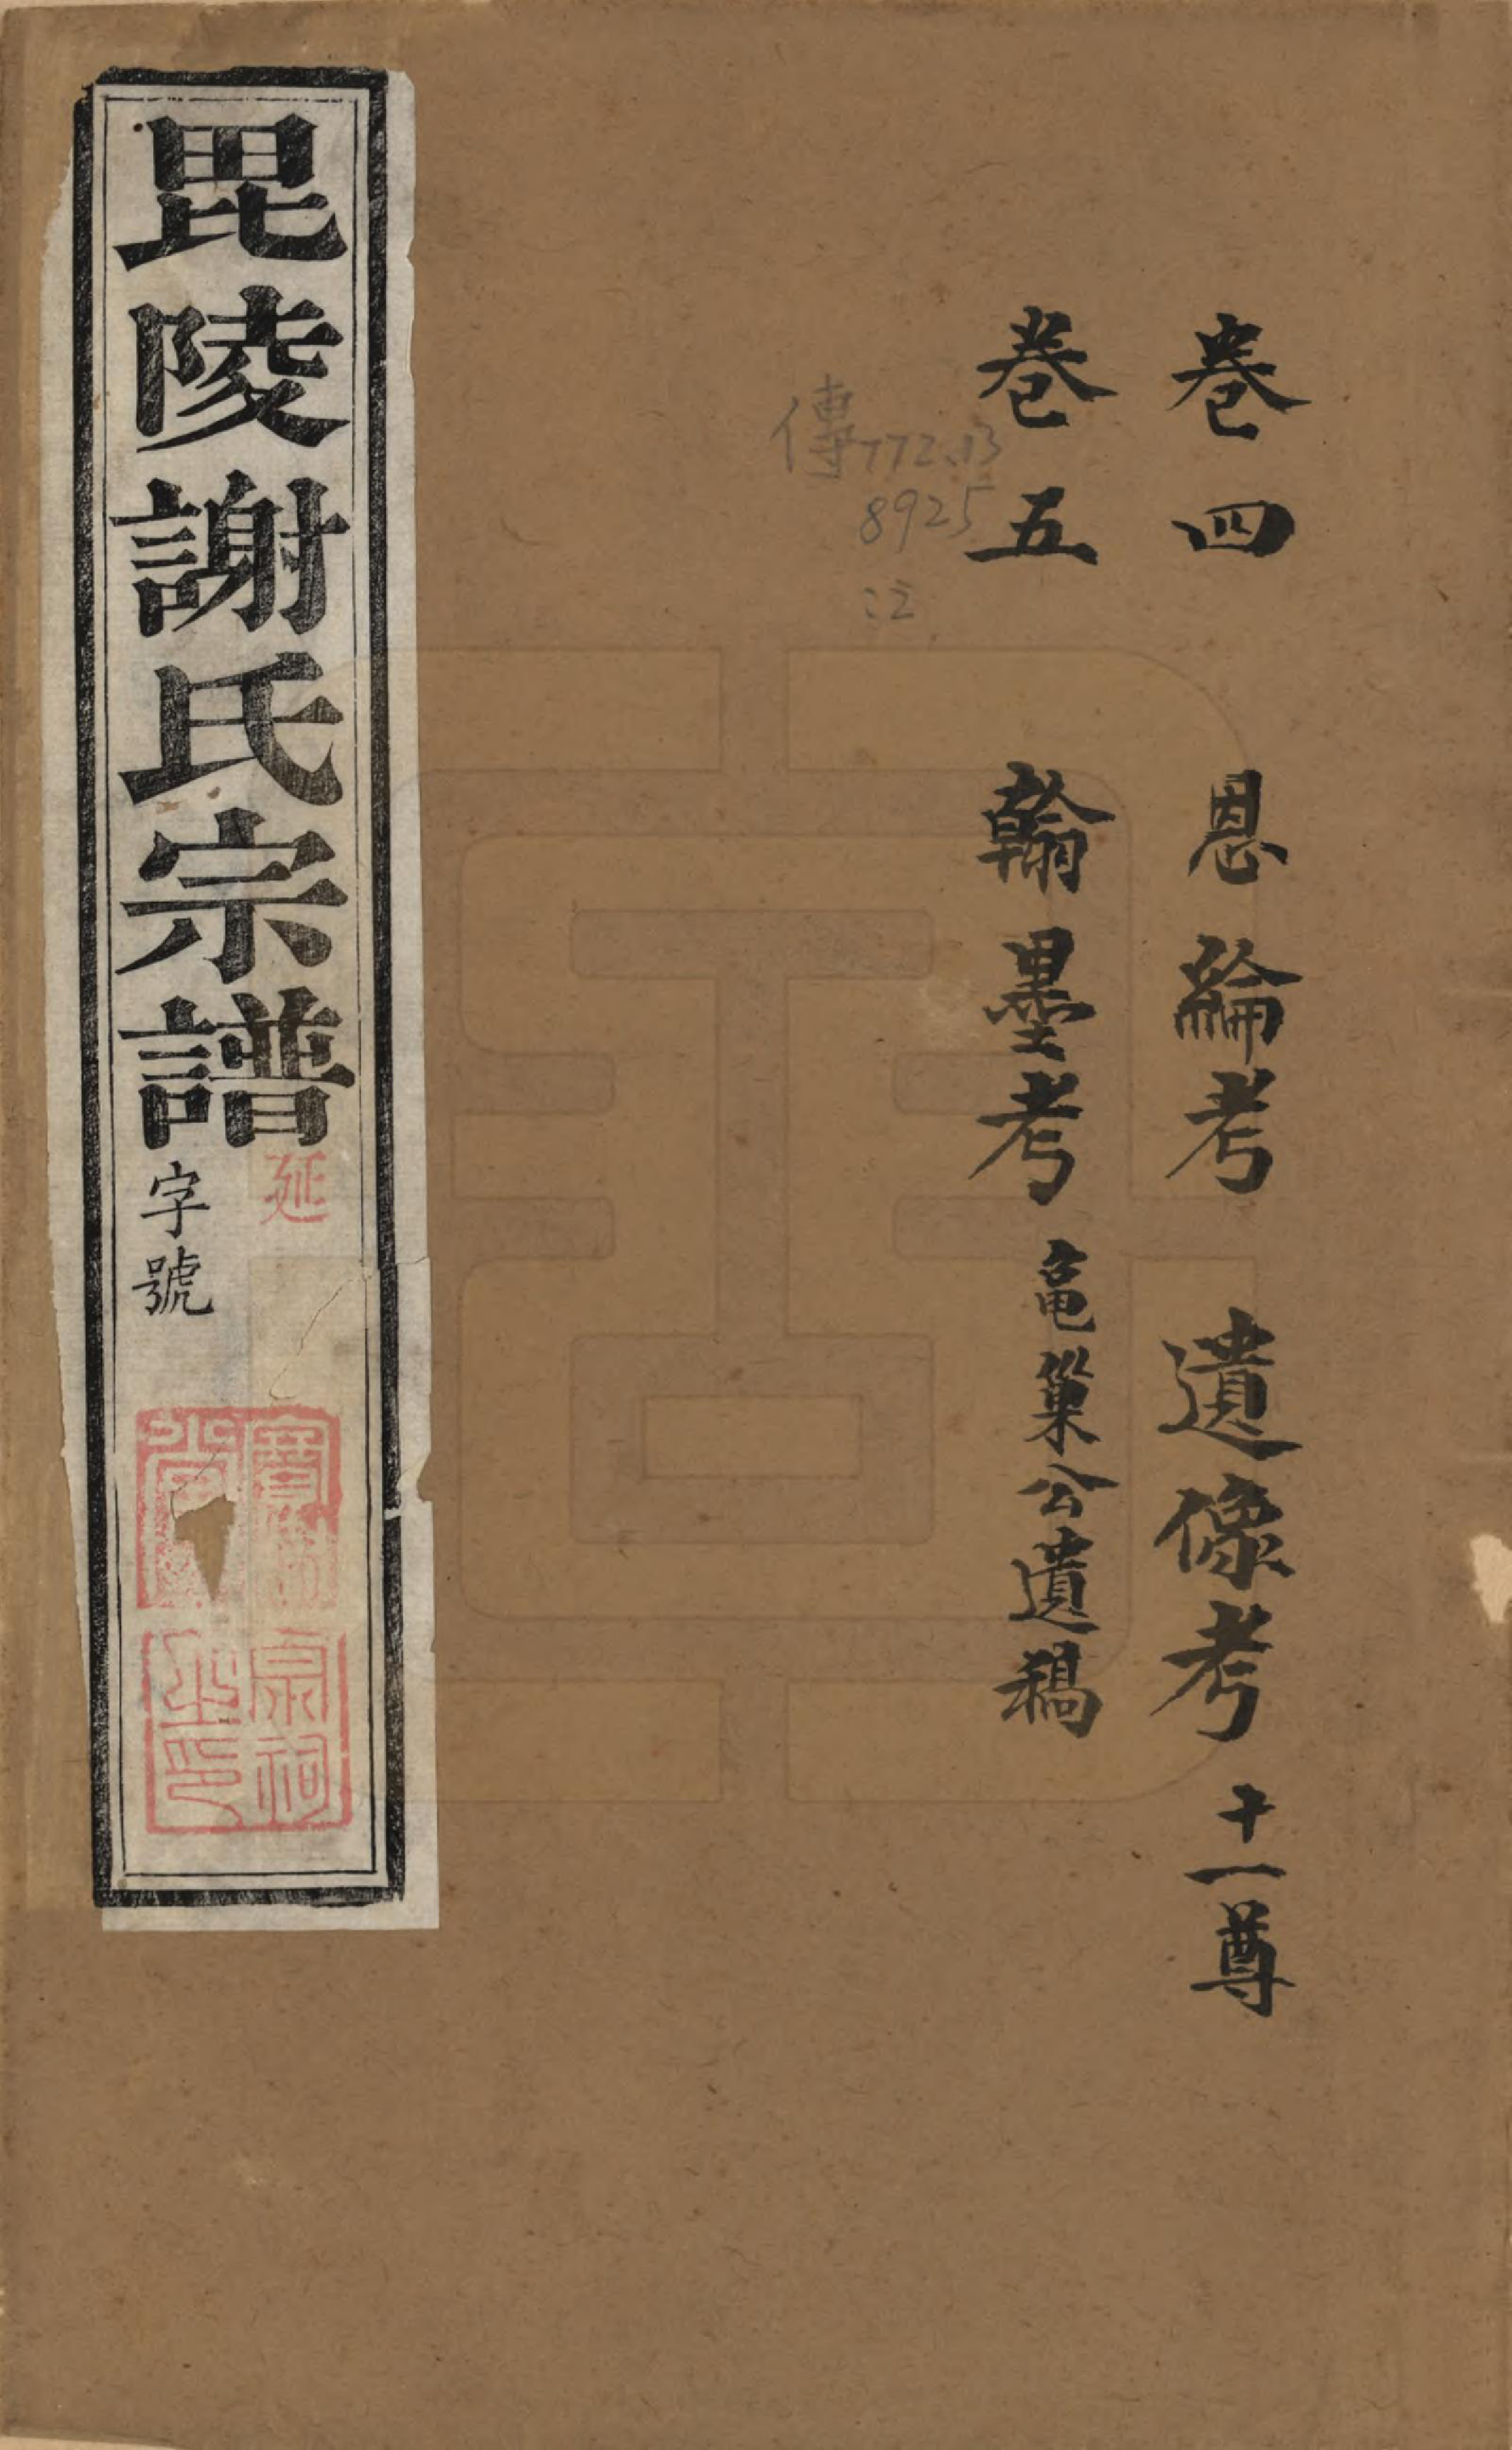 卷四 恩綸考 遺像考 十一尊
卷五 翰墨考 龜巢公遺稿
傳772.13
8925
:2
毘陵謝氏宗譜
延
字號
宗祠
之印